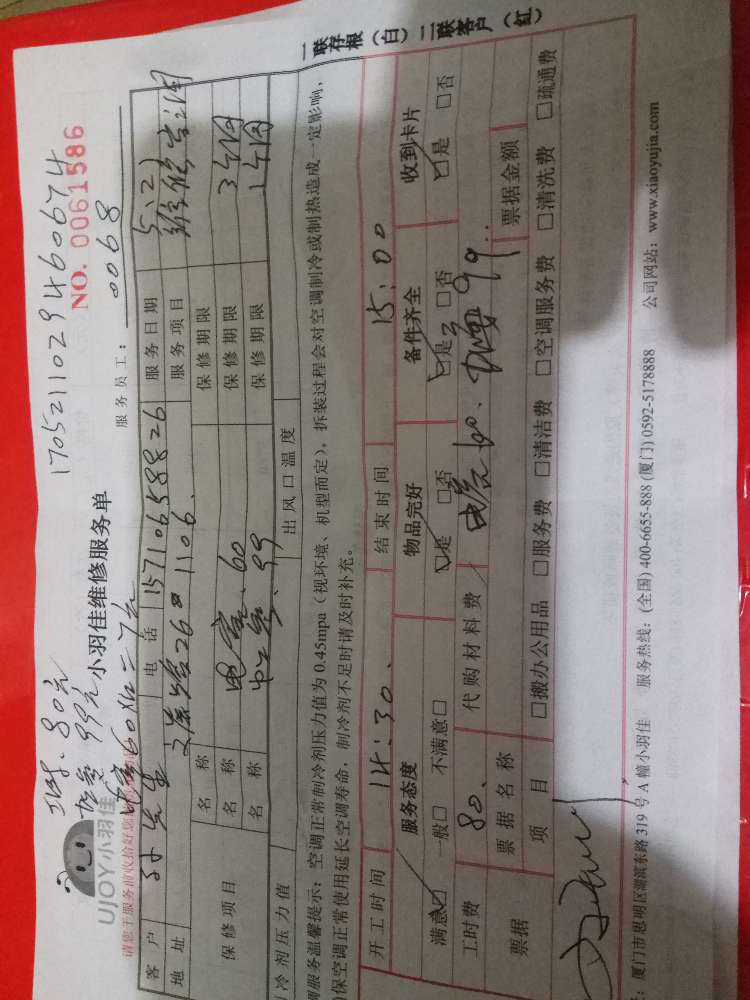 一联存根（白）二联客户（红）
1705211029460674
NO. 0061586
工时. 80元
99元
UJOY小羽佳
小羽佳维修服务单
服务员工： 0068
请您于服务前收拾好您
客户 电话 15710658826 服务日期 5.21
地址 268 1106. 服务项目
保修项目 名称 保修期限
名称 电容. 60 保修期限 3个月
名称 99 保修期限 1个月
冷剂压力值 出风口温度
调服务温馨提示：空调正常制冷剂压力值为 0.45mpa（视环境、机型而定），拆装过程会对空调制冷或制热造成一定影响，
保空调正常使用延长空调寿命，制冷剂不足时请及时补充。
开工时间 14:30. 结束时间 15:00
服务态度 物品完好 备件齐全 收到卡片
满意☑ 一般□ 不满意□ ☑是 □否 ☑是 □否 ☑是 □否
工时费 80. 代购材料费 电容 60. 99..
票据 票据名称 票据金额
项目 □搬办公用品 □服务费 □清洁费 □空调服务费 □清洗费 □疏通费
：厦门市思明区湖滨东路 319 号 A 幢小羽佳 服务热线：(全国) 400-6655-888 (厦门) 0592-5178888 公司网站：www.xiaoyujia.com